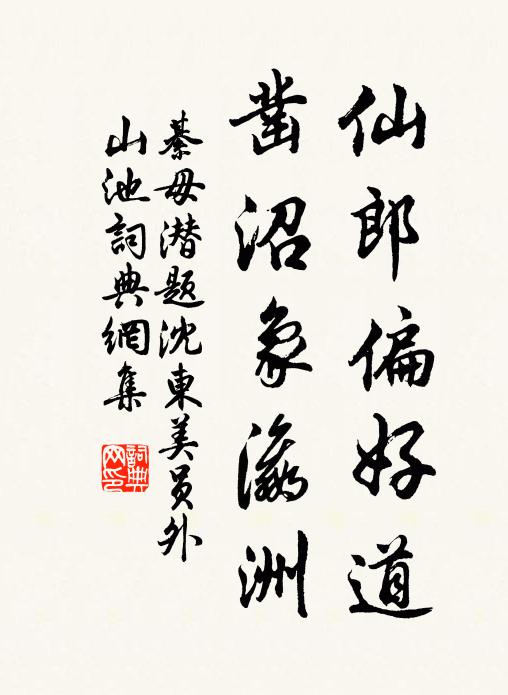 仙郎偏好道
凿沼象瀛洲
綦毋潜题沈東美员外
山池詞典網集
詞典
网印